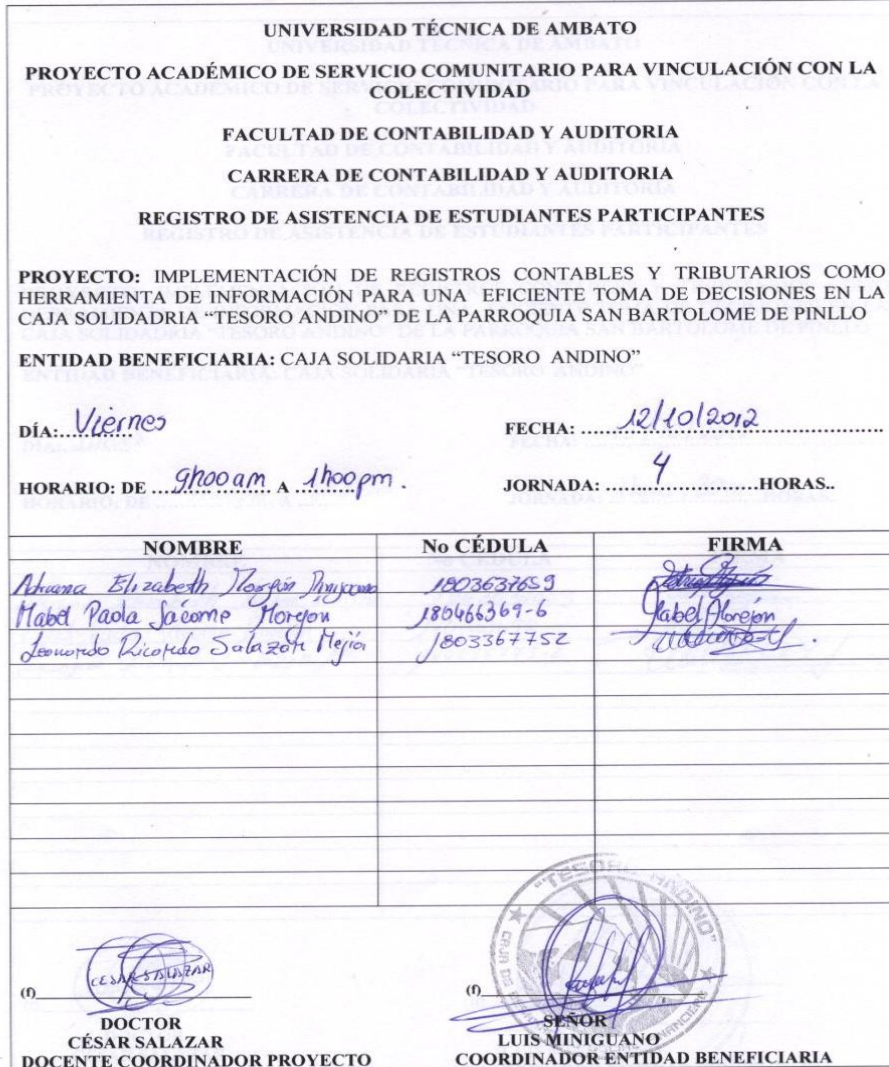 UNIVERSIDAD TÉCNICA DE AMBATO
PROYECTO ACADÉMICO DE SERVICIO COMUNITARIO PARA VINCULACIÓN CON LA
COLECTIVIDAD
FACULTAD DE CONTABILIDAD Y AUDITORIA
CARRERA DE CONTABILIDAD Y AUDITORIA
REGISTRO DE ASISTENCIA DE ESTUDIANTES PARTICIPANTES
PROYECTO: IMPLEMENTACIÓN DE REGISTROS CONTABLES Y TRIBUTARIOS COMO
HERRAMIENTA DE INFORMACIÓN PARA UNA EFICIENTE TOMA DE DECISIONES EN LA
CAJA SOLIDADRIA “TESORO ANDINO” DE LA PARROQUIA SAN BARTOLOME DE PINLLO
ENTIDAD BENEFICIARIA: CAJA SOLIDARIA “TESORO ANDINO”
DÍA: Viernes FECHA: 12/10/2012
HORARIO: DE 9h00 am A 1h00pm. JORNADA: 4 HORAS..
NOMBRE No CÉDULA FIRMA
Adriana Elizabeth 1803637659
Mabel Paola Jácome Morejon 180466369-6 Mabel Morejon
Leonardo Ricardo Salazar Mejía 1803367752
"TESORO ANDINO"
CAJA DE
CESAR SALAZAR
(f) (f)
DOCTOR SEÑOR
CÉSAR SALAZAR LUIS MINIGUANO
DOCENTE COORDINADOR PROYECTO COORDINADOR ENTIDAD BENEFICIARIA